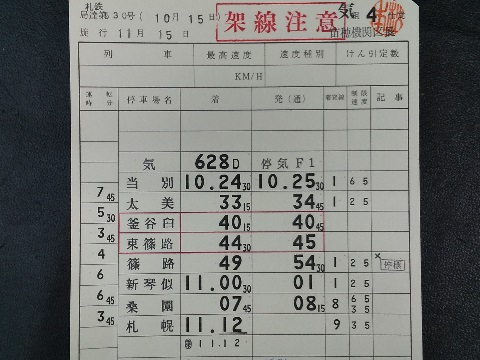 札鉄
局達第530号 (10月15日)
施行 11月15日
架線注意
気 4
苗穂機関区
列 車 最高速度 速度種別 けん引定数
KM/H
運転時分 停車場名 着 発(通) 着発線 制限速度 記事
気 628D 停気F1
当別 10.24 30 10.25 30 1 65
7 45
太美 33 15 34 45 1 25
5 30
釜谷臼 40 15 40 45
3 45
東篠路 44 30 45
4
篠路 49 54 30 1 25 ×停橋
6
新琴似 11.00 30 01 1 25
6 45
桑園 07 45 08 15 8 65 35
3 45
札幌 11.12 9 35
11.12